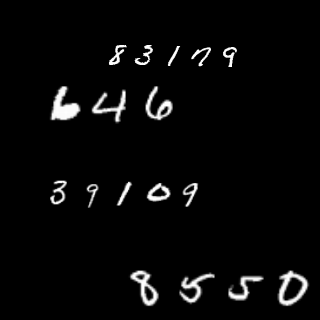 83179
646
39109
8550